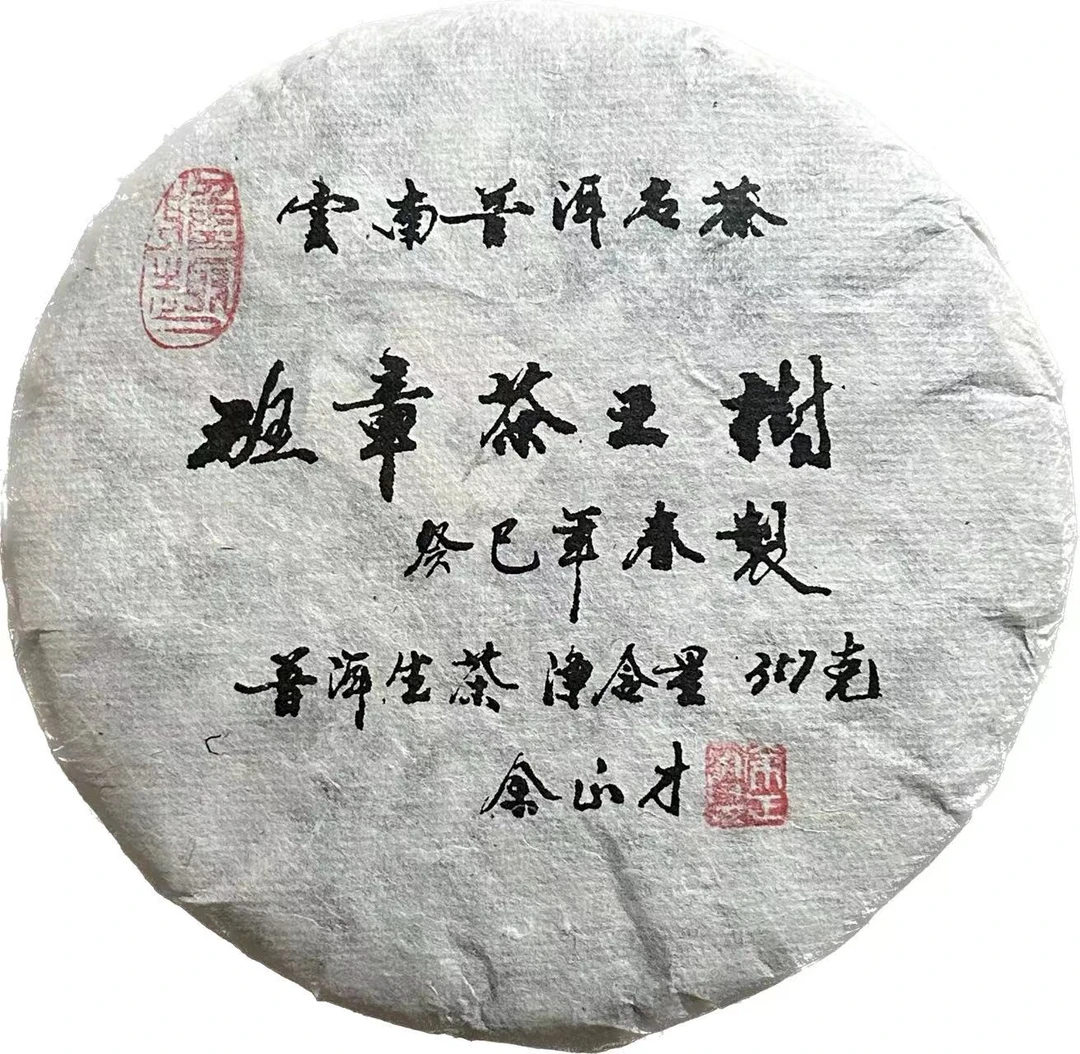 雲南普洱名茶
班章茶王樹
癸巳年春製
普洱生茶 净含量 357克
余正才